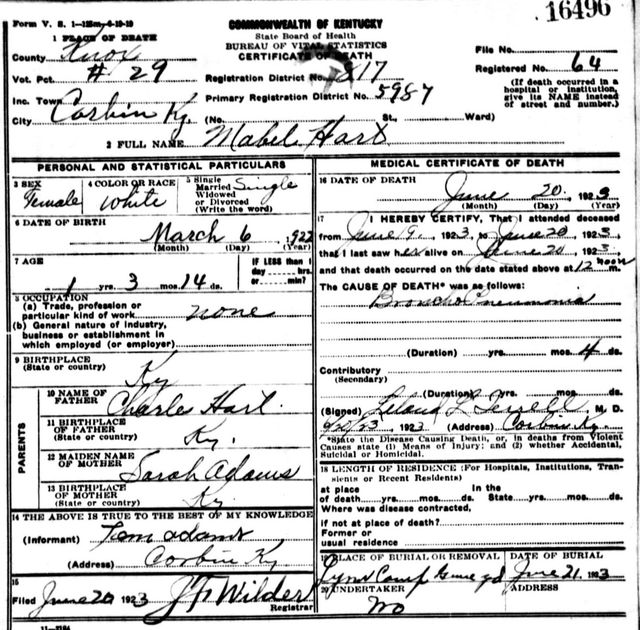 16496
Form V. S. 1-125m-4-19-19
COMMONWEALTH OF KENTUCKY
State Board of Health
BUREAU OF VITAL STATISTICS
CERTIFICATE OF DEATH
1 PLACE OF DEATH
County Knox
Vot. Pct. #29
Inc. Town
City Corbin Ky
Registration District No. 817
Primary Registration District No. 5987
(No. St., Ward)
File No.
Registered No. 64
(If death occurred in a
hospital or institution,
give its NAME instead
of street and number.)
2 FULL NAME Mabel Hart
PERSONAL AND STATISTICAL PARTICULARS
3 SEX
Female
4 COLOR OR RACE
White
5 Single
Married
Widowed
or Divorced
(Write the word)
Single
6 DATE OF BIRTH
March 6 1922
(Month) (Day) (Year)
7 AGE
1 yrs. 3 mos. 14 ds.
IF LESS than 1
day hrs.
or min.?
8 OCCUPATION
(a) Trade, profession or
particular kind of work none
(b) General nature of industry,
business or establishment in
which employed (or employer)
9 BIRTHPLACE
(State or country)
Ky
PARENTS
10 NAME OF
FATHER
Charles Hart
11 BIRTHPLACE
OF FATHER
(State or country)
Ky.
12 MAIDEN NAME
OF MOTHER
Sarah Adams
13 BIRTHPLACE
OF MOTHER
(State or country)
Ky
14 THE ABOVE IS TRUE TO THE BEST OF MY KNOWLEDGE
(Informant) Tom adams
(Address) Corbin Ky
15
Filed June 20 1923 J F Wilder
Registrar
MEDICAL CERTIFICATE OF DEATH
16 DATE OF DEATH
June 20. 1923
(Month) (Day) (Year)
17 I HEREBY CERTIFY, That I attended deceased
from June 19. 1923, to June 20, 1923,
that I last saw her alive on June 20, 1923,
and that death occurred on the date stated above at 12 noon m.
The CAUSE OF DEATH* was as follows:
Broncho Pneumonia
(Duration) yrs. mos. 4 ds.
Contributory
(Secondary)
(Duration) yrs. mos. ds.
(Signed) Leland L Terrell M. D.
6/20/23 1923 (Address) Corbin Ky.
*State the Disease Causing Death, or, in deaths from Violent
Causes state (1) Means of Injury; and (2) whether Accidental,
Suicidal or Homicidal.
18 LENGTH OF RESIDENCE (For Hospitals, Institutions, Tran-
sients or Recent Residents)
at place In the
of death yrs. mos. ds. State yrs. mos. ds.
Where was disease contracted,
if not at place of death?
Former or
usual residence
19 PLACE OF BURIAL OR REMOVAL
Lynn Camp
DATE OF BURIAL
June 21. 1923
20 UNDERTAKER
No
ADDRESS
11-3184